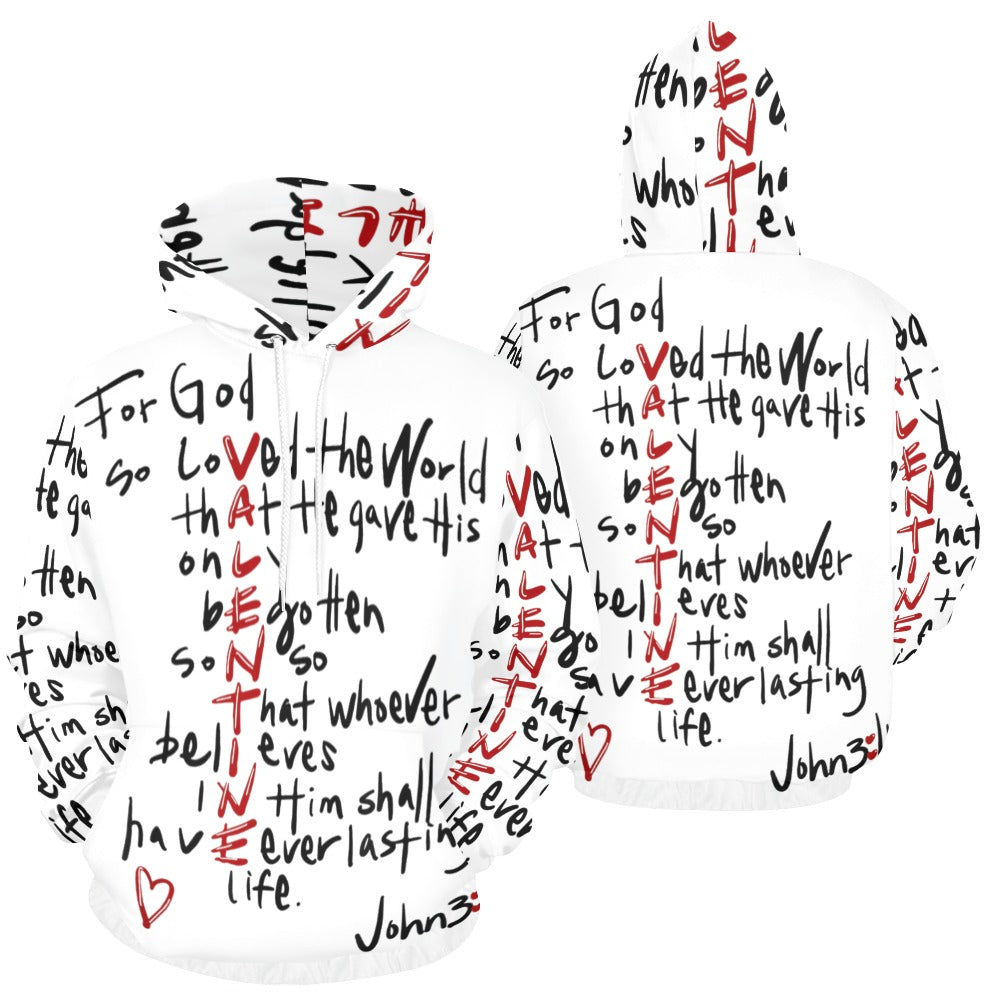 For God
so LoVed the World
thAt He gave His
onLy
bEgotten
soNso
That whoever
belIeves
IN Him shall
havE everlasting
life.
John3:
For God
so LoVed the World
thAt He gave His
onLy
bEgotten
soNso
That whoever
belIeves
IN Him shall
savE everlasting
life.
John3: